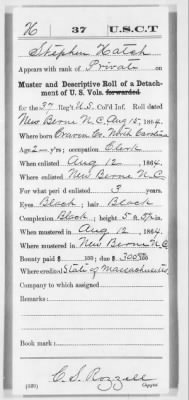 H | 37 | U.S.C.T
Stephen Hatch
Appears with rank of Private on
Muster and Descriptive Roll of a Detach-
ment of U. S. Vols. forwarded
for the 37 Reg't U.S. Col'd Inf. Roll dated
New Berne N.C. Aug 15, 1864.
Where born Craven Co. North Carolina
Age 2 y'rs; occupation Clerk
When enlisted Aug 12, 1864.
Where enlisted New Berne N.C.
For what period enlisted 3 years.
Eyes Black; hair Black
Complexion Black; height 5 ft. in.
When mustered in Aug 12, 1864.
Where mustered in New Berne N.C.
Bounty paid $ 100; due $ 300 100
Where credited State of Massachusetts
Company to which assigned
Remarks:
Book mark:
(339) C. S. Rozzell
Copyist.